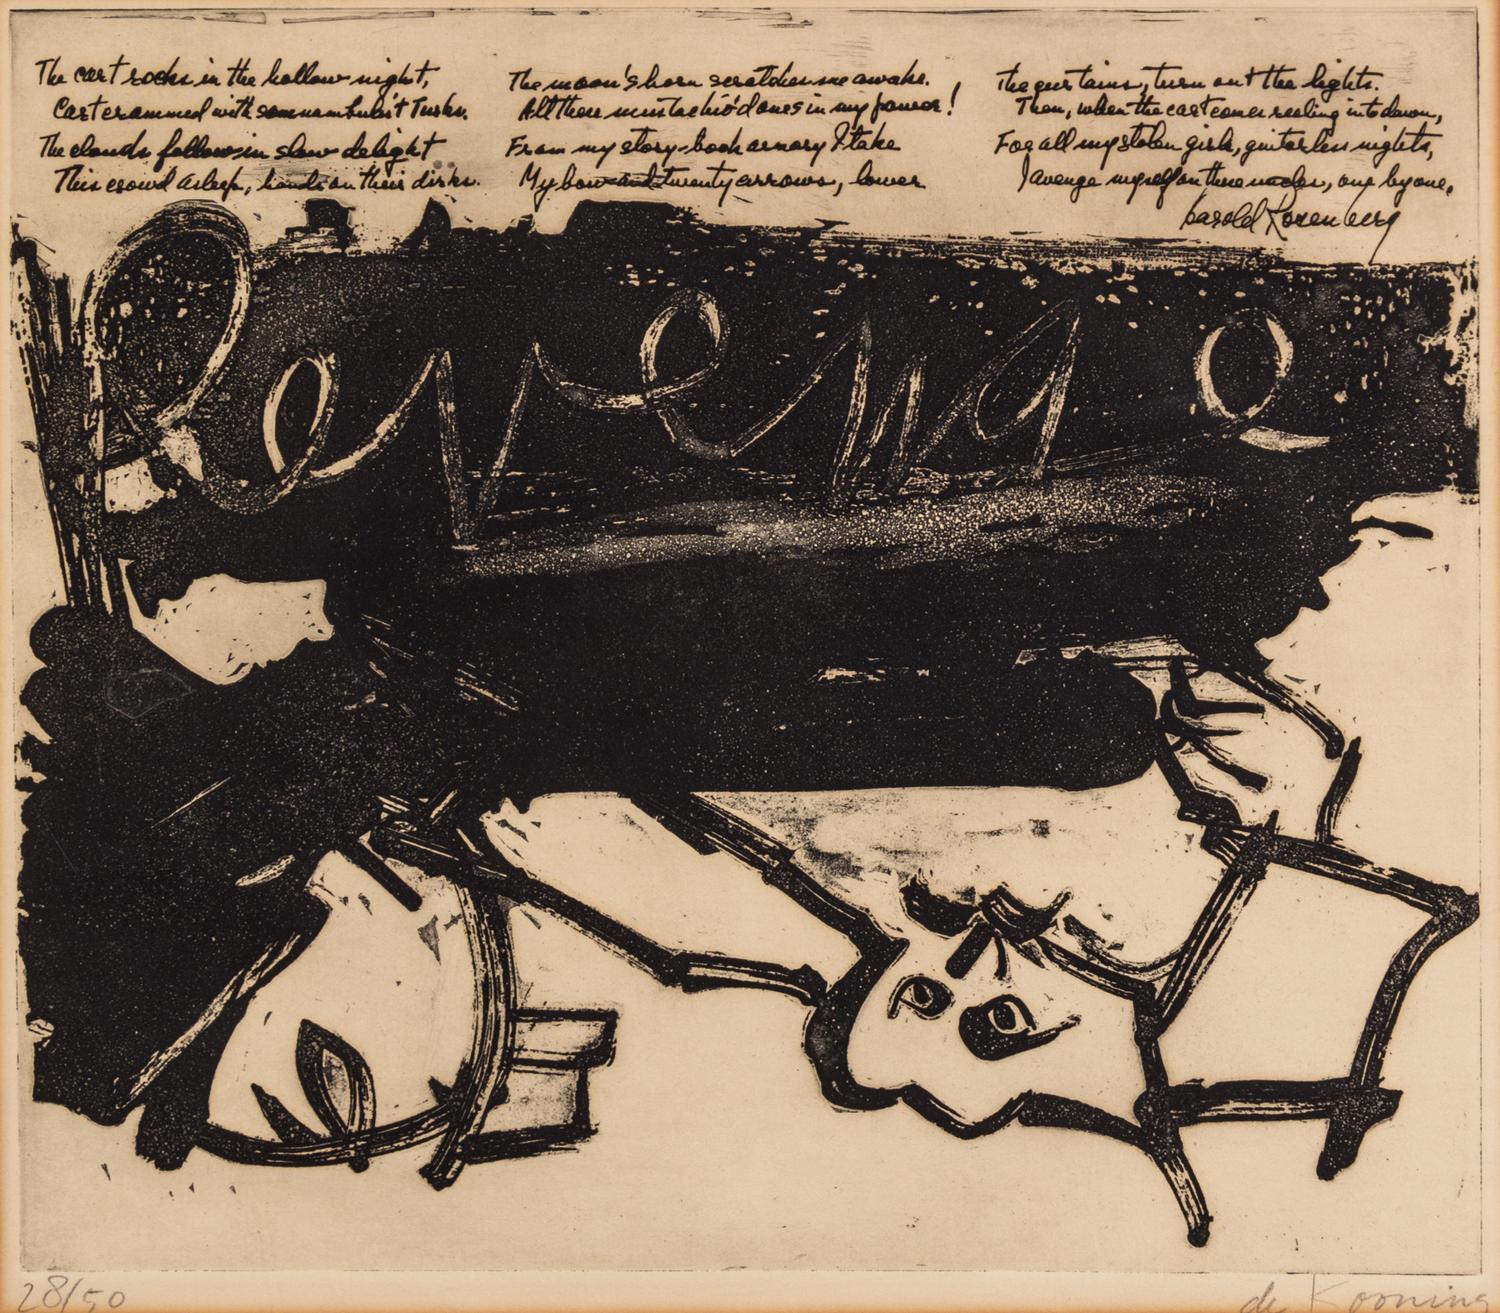 The cart rocks in the hollow night,
Cart crammed with somnambulist Turks.
The clouds follow in slow delight
This crowd asleep, hands on their dirks.
The moon's horn scratches me awake.
All these mustachio'd ones in my power!
From my story-book armory I take
My bow and twenty arrows, lower
The curtains, turn out the lights.
Then, when the cart comes reeling into dawn,
For all my stolen girls, guitarless nights,
I avenge myself on these males, one by one.
Harold Rosenberg
Revenge
28/50
de Kooning